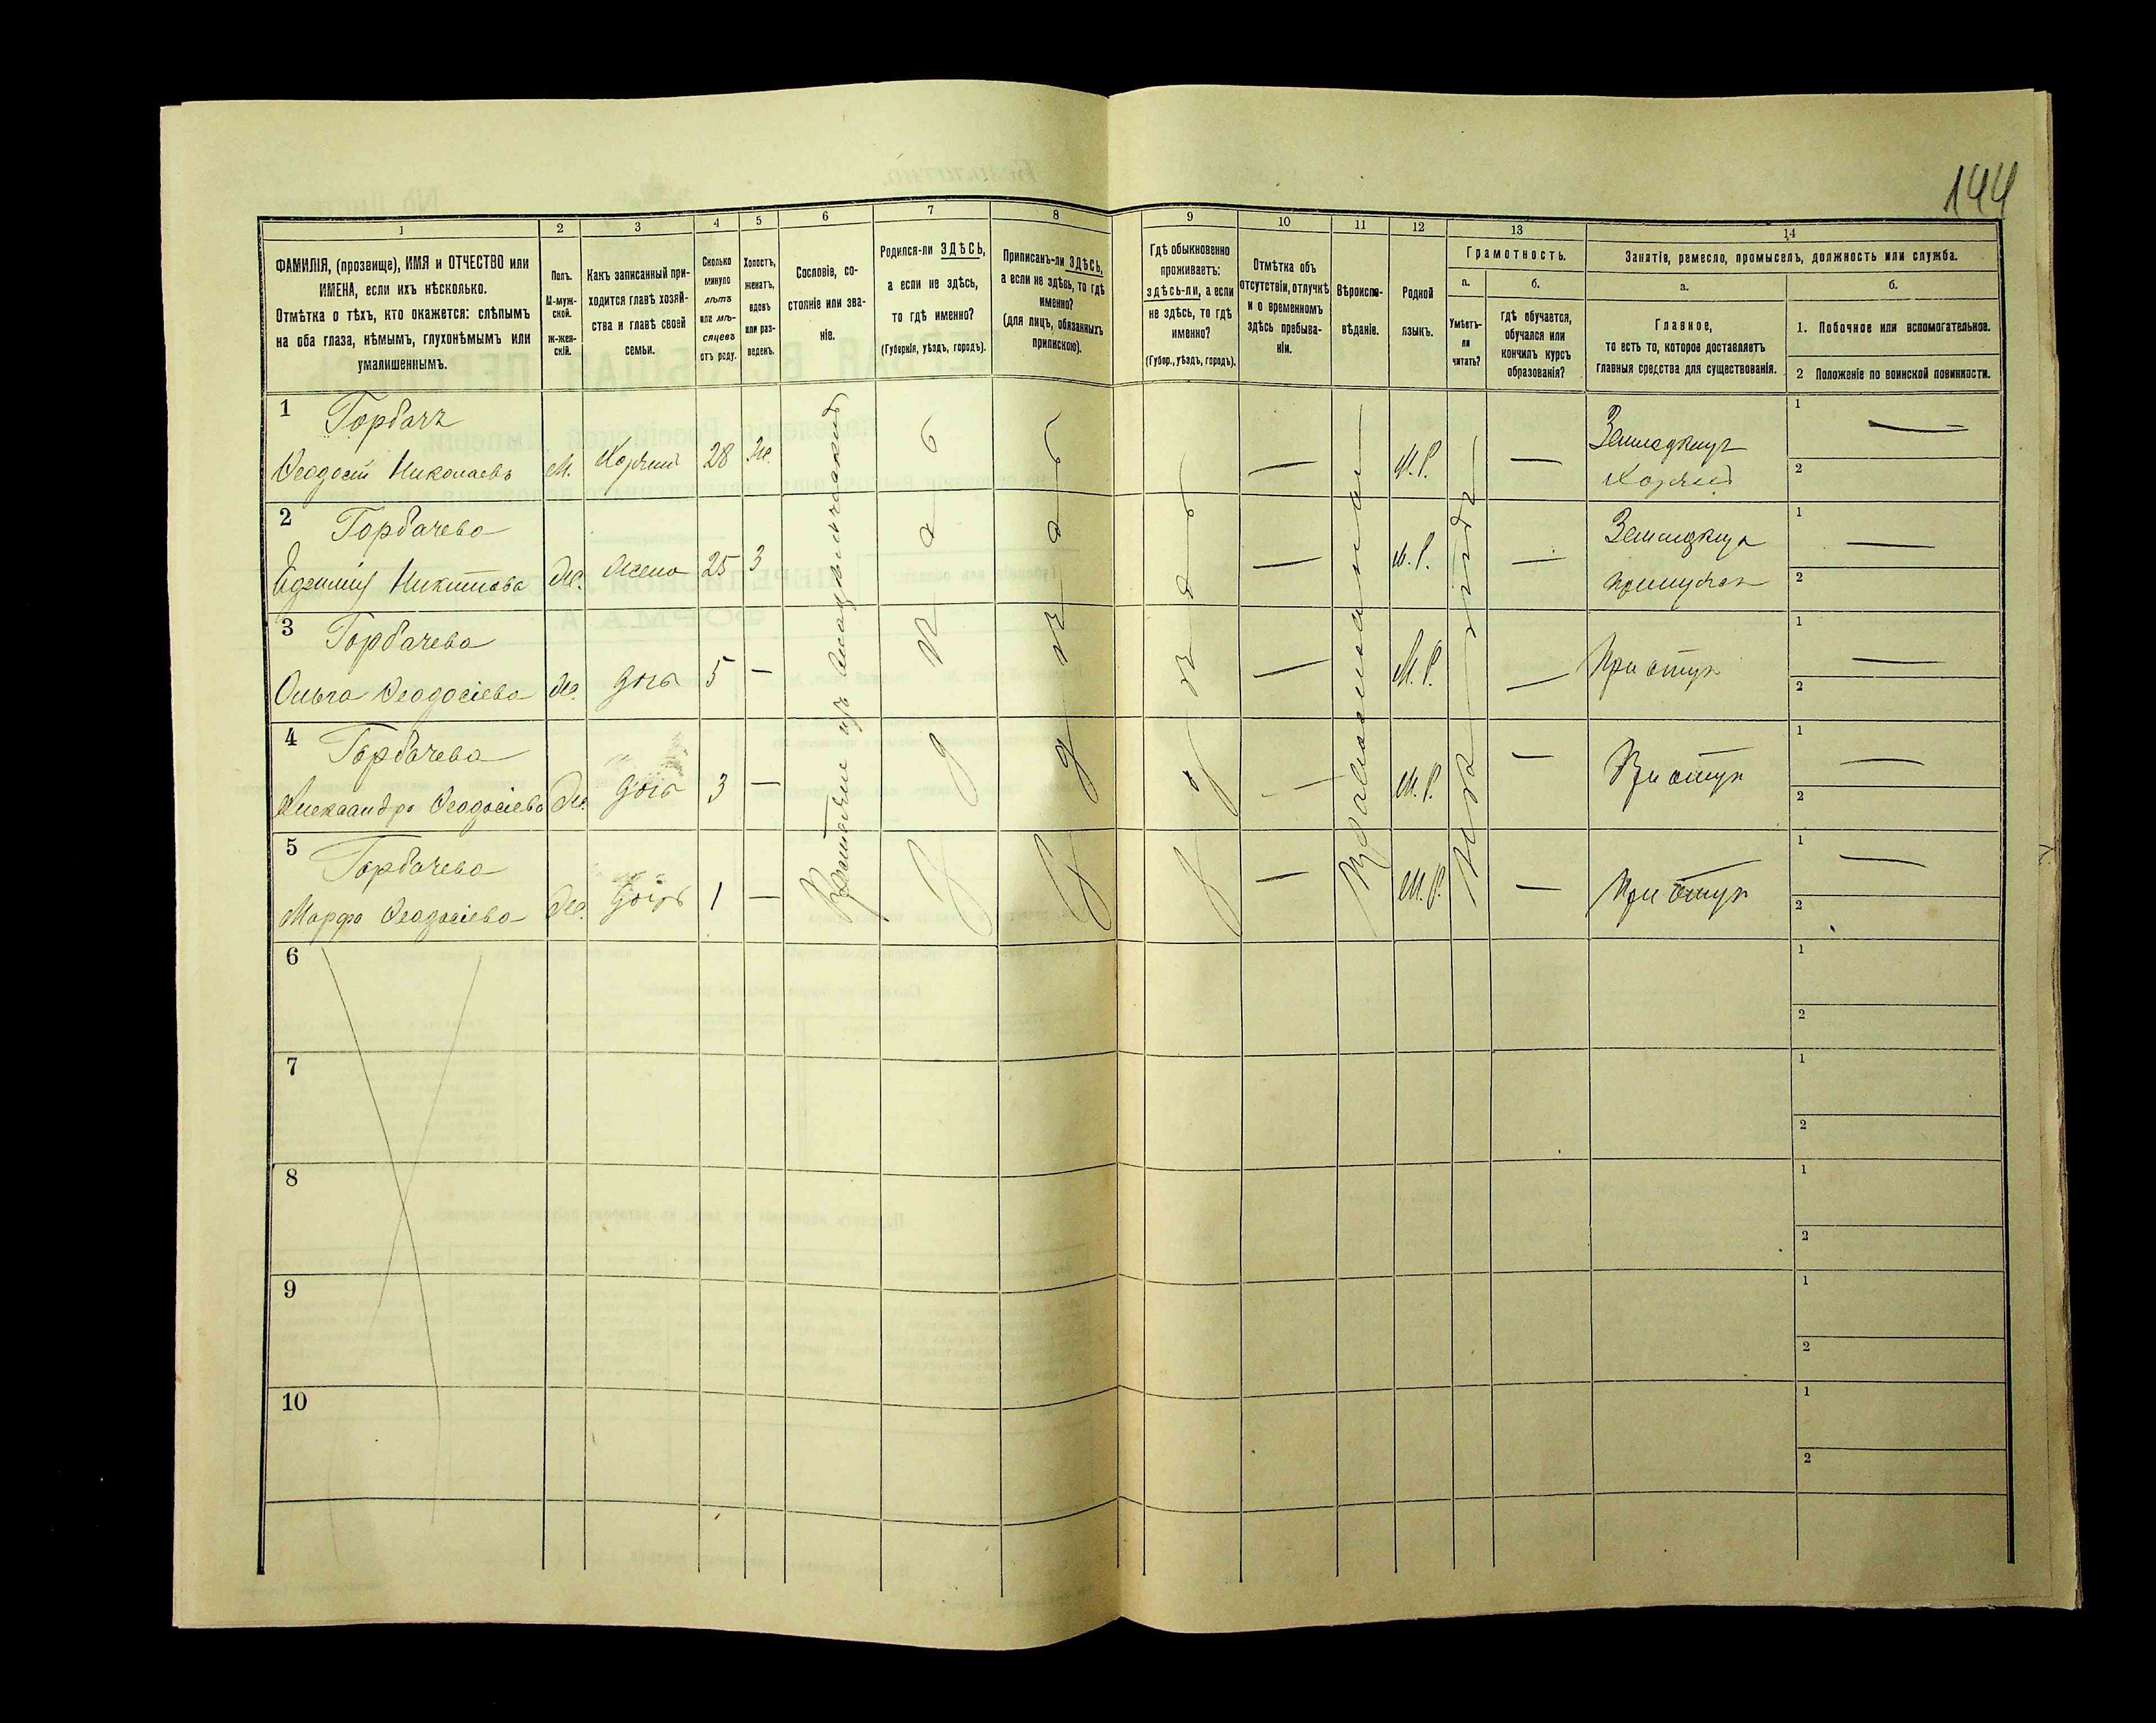 144
1
2
3
4
5
6
7
8
9
10
11
12
13
14
ФАМИЛІЯ, (прозвище), ИМЯ и ОТЧЕСТВО или
ИМЕНА, если ихъ нѣсколько.
Отмѣтка о тѣхъ, кто окажется: слѣпымъ
на оба глаза, нѣмымъ, глухонѣмымъ или
умалишеннымъ.
Полъ.
М-муж-
ской.
Ж-жен-
скій.
Какъ записанный при-
ходится главѣ хозяй-
ства и главѣ своей
семьи.
Сколько
минуло
лѣтъ
или мѣ-
сяцевъ
отъ роду.
Холостъ,
женатъ,
вдовъ
или раз-
веденъ.
Сословіе, со-
стояніе или зва-
ніе.
Родился-ли ЗДѢСЬ,
а если не здѣсь,
то гдѣ именно?
(Губернія, уѣздъ, городъ).
Приписанъ-ли ЗДѢСЬ,
а если не здѣсь, то гдѣ
именно?
(для лицъ, обязанныхъ
припискою).
Гдѣ обыкновенно
проживаетъ:
здѣсь-ли, а если
не здѣсь, то гдѣ
именно?
(Губер., уѣздъ, городъ).
Отмѣтка объ
отсутствіи, отлучкѣ
и о временномъ
здѣсь пребыва-
ніи.
Вѣроиспо-
вѣданіе.
Родной
языкъ.
Грамотность.
а.
Умѣетъ-
ли
читать?
б.
гдѣ обучается,
обучался или
кончилъ курсъ
образованія?
Занятія, ремесло, промыселъ, должность или служба.
а.
Главное,
то есть то, которое доставляетъ
главныя средства для существованія.
б.
1. Побочное или вспомогательное.
2 Положеніе по воинской повинности.
1 Горбачъ
Феодосій Николаевъ М. 28 Же. М.Р.
1
2
2 Горбачева
Никитова Же. жена 25 З М.Р.
1
2
3 Горбачева
Ольга Феодосіева Же. дочь 5 — М.Р.
1
2
4 Горбачева
Александра Феодосіева Же. дочь 3 — М.Р.
1
2
5 Горбачева
Марфа Феодосіева Же. дочь 1 — М.Р.
1
2
Православная
6
1
2
7
1
2
8
1
2
9
1
2
10
1
2